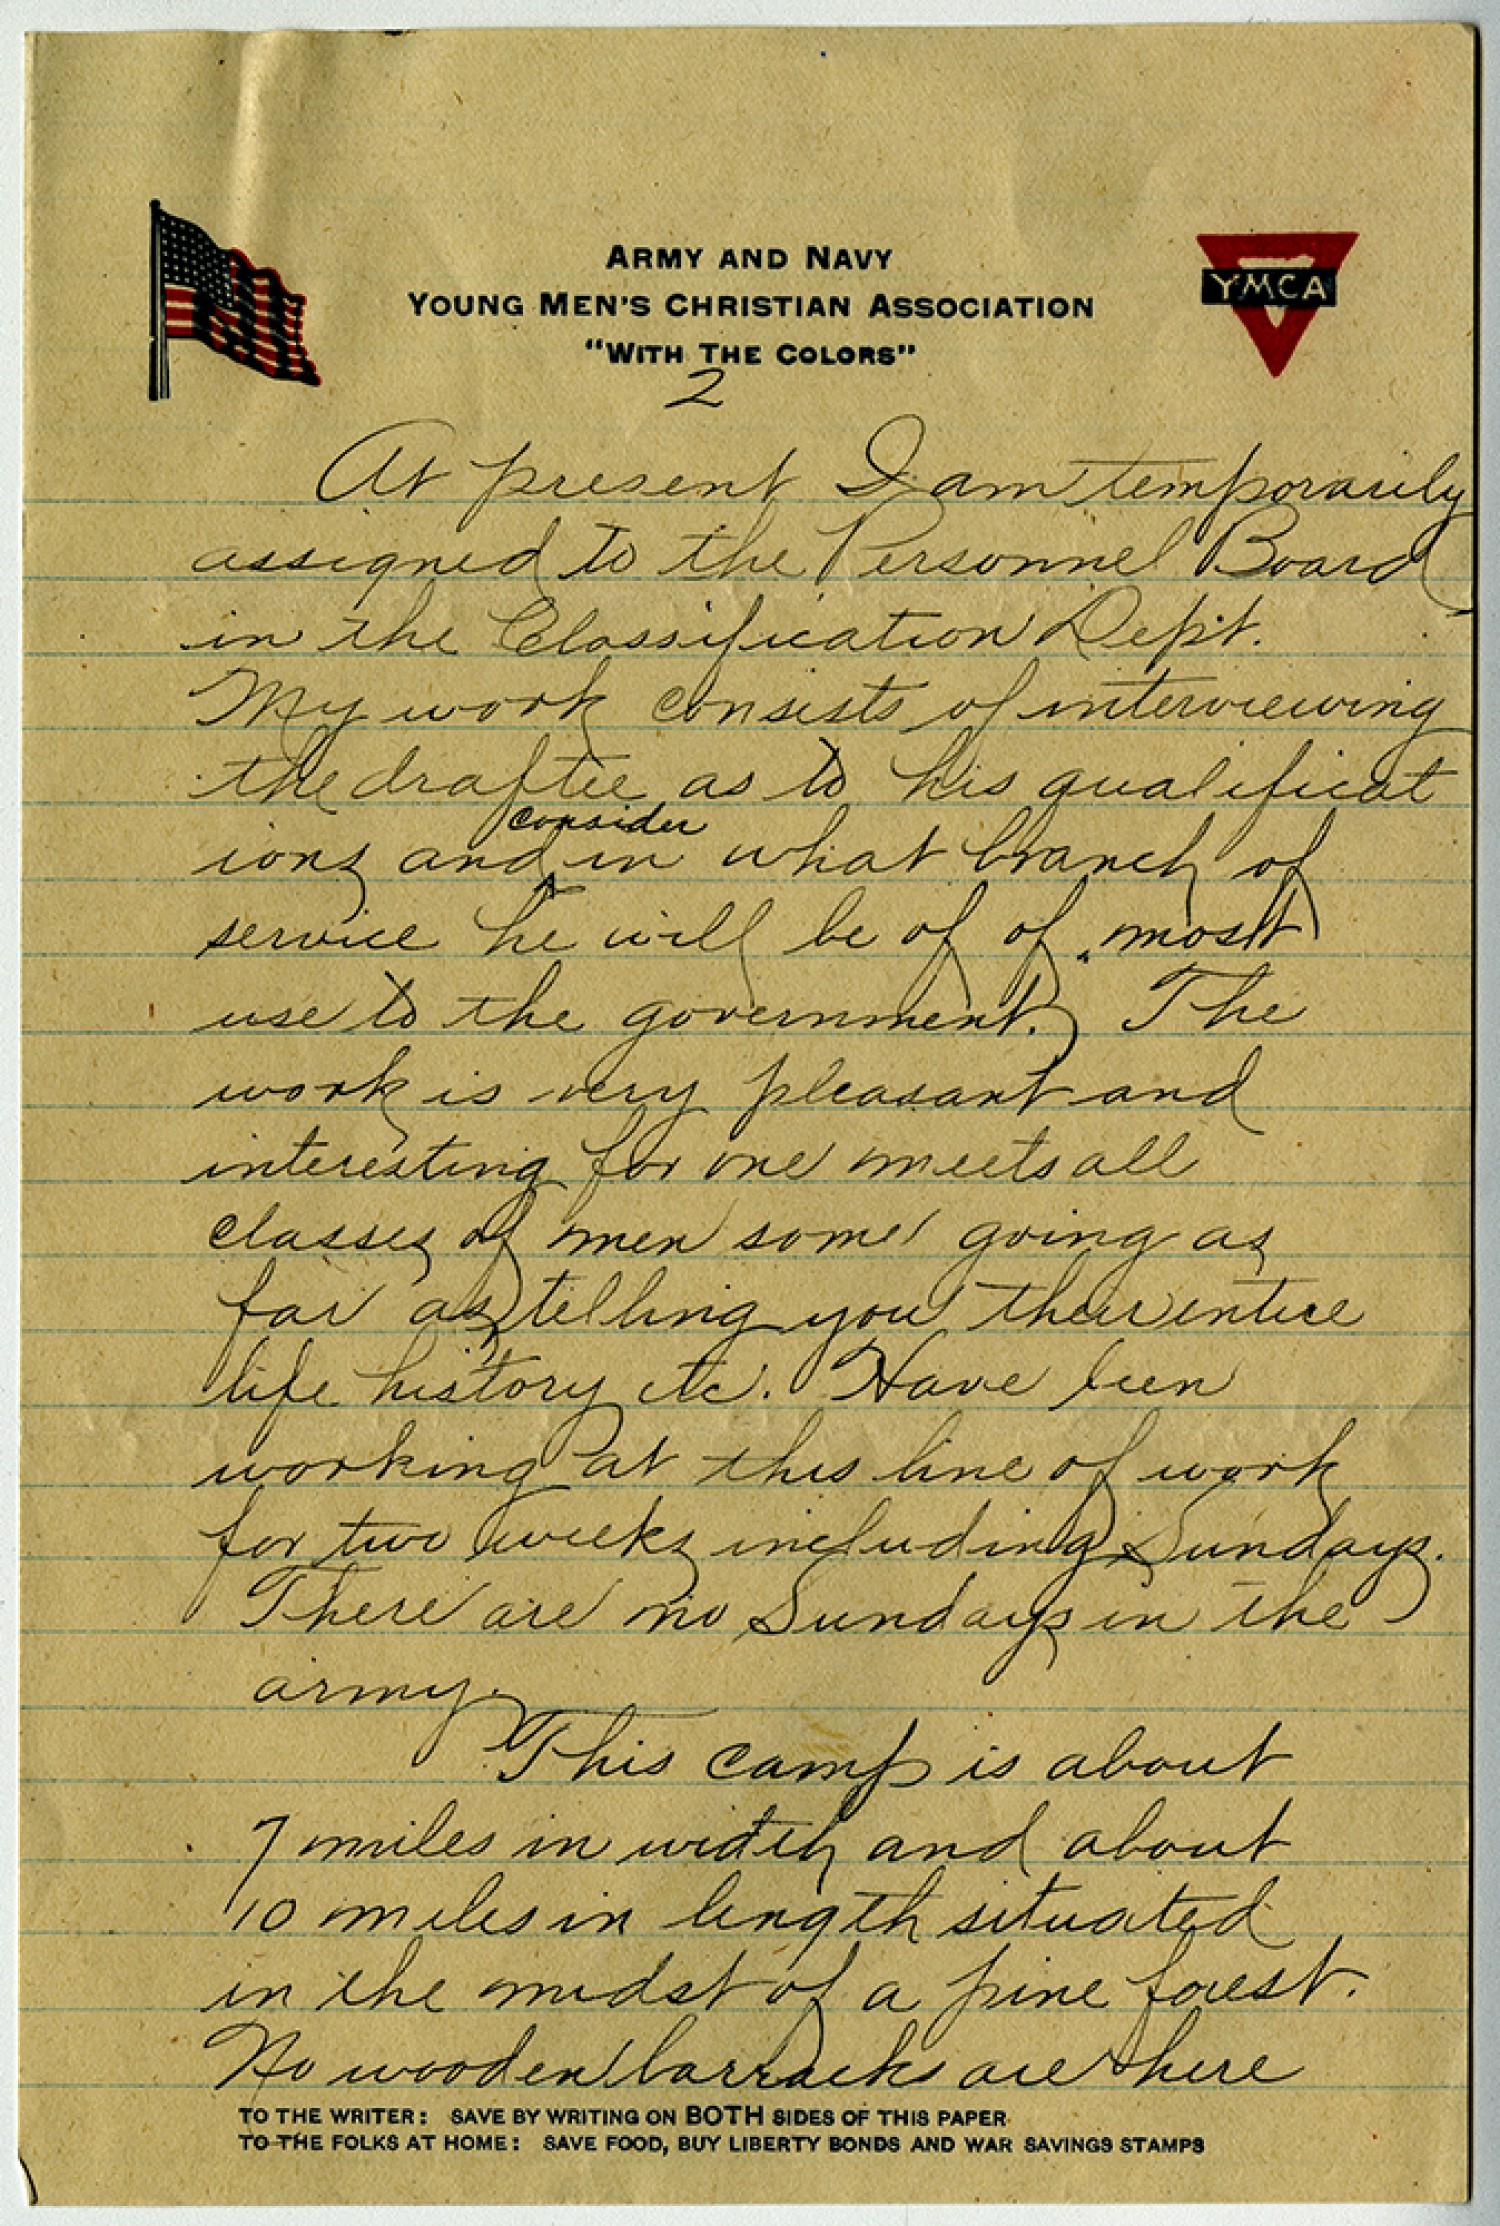 ARMY AND NAVY
YOUNG MEN'S CHRISTIAN ASSOCIATION
"WITH THE COLORS"
YMCA
2
At present I am temporarily
assigned to the Personnel Board
in the Classification Dept.
My work consists of interviewing
the draftee as to his qualificat
ions and consider in what branch of
service he will be of of most
use to the government. The
work is very pleasant and
interesting for one meets all
classes of men some going as
far as telling you their entire
life history etc. Have been
working at this line of work
for two weeks including Sundays.
There are no Sundays in the
army.
This camp is about
7 miles in width and about
10 miles in length situated
in the midst of a pine forest.
No wooden barracks are here
TO THE WRITER: SAVE BY WRITING ON BOTH SIDES OF THIS PAPER
TO THE FOLKS AT HOME: SAVE FOOD, BUY LIBERTY BONDS AND WAR SAVINGS STAMPS